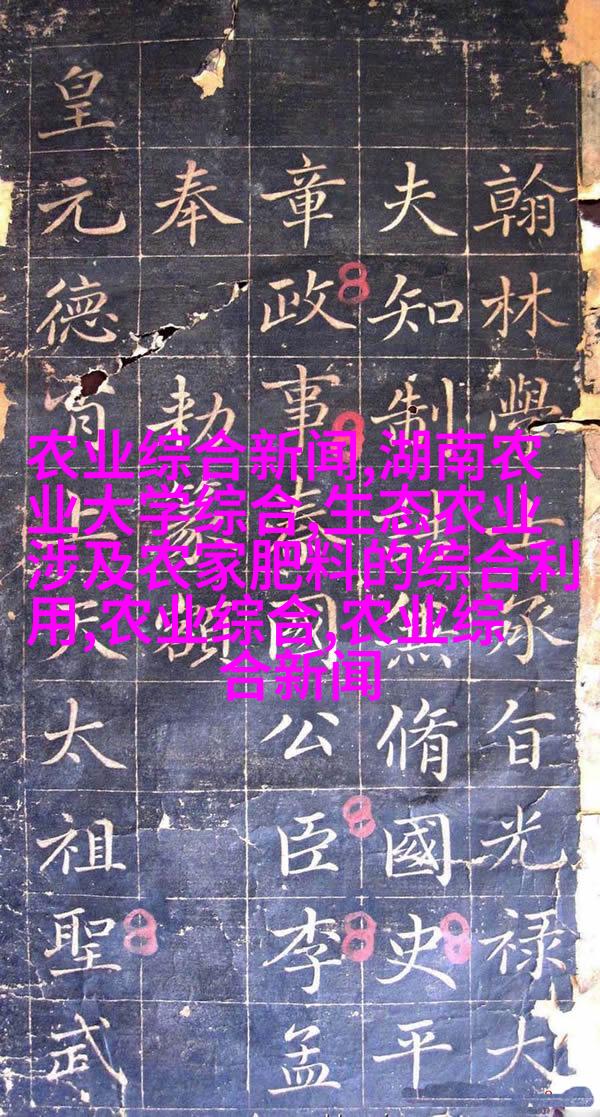 农业综合新闻,湖南农
业大学综合,生态农业
涉及农家肥料的综合利
用,农业综合,农业综
合新闻
翰林學士承旨光禄大
夫知制兼脩國史平
章政事秦國公臣李孟
奉勅篆
皇元德天太祖聖武